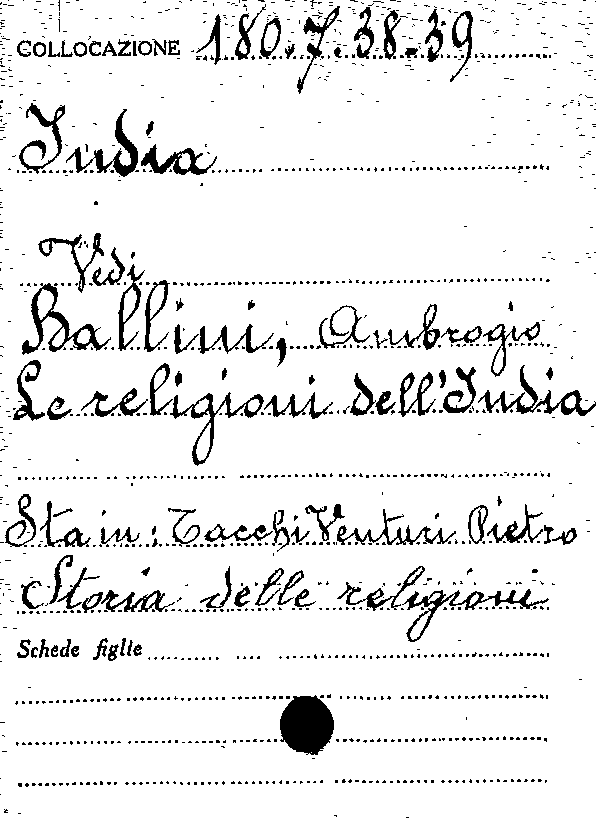 COLLOCAZIONE 180.7.38.39
India
Vedi
Ballini, Ambrogio
Le religioni dell'India
Sta in: Tacchi Venturi Pietro
Storia delle religioni
Schede figlie